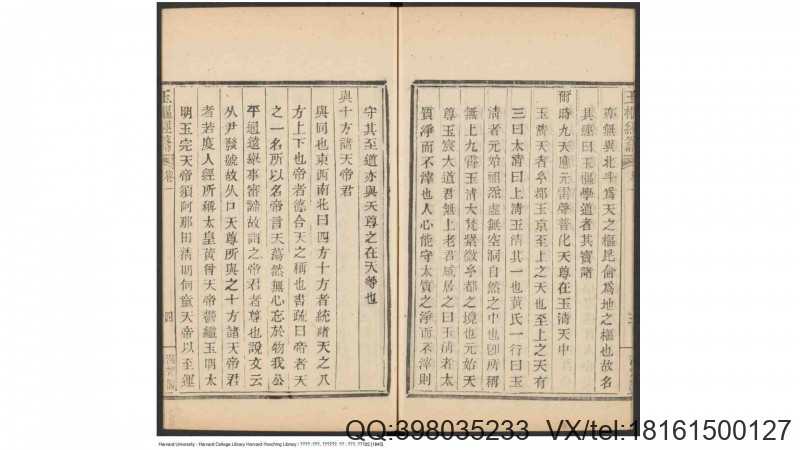 亦無與北斗為天之樞昆侖為地之樞也故名
其經曰玉樞學道者其寶諸
爾時九天應元雷聲普化天尊在玉清天中
玉清天者乃都玉京至上之天也至上之天有
三曰太清曰上清玉清其一也黃氏一行曰玉
清者元始祖炁虛無空洞自然之中也即所稱
無上九霄玉清大梵紫微玄都之境也元始天
尊玉宸大道君無上老君咸居之曰玉清者太
質淨而不滓也人心能守太質之淨而不滓則
守其至道亦與天尊之在天等也
與十方諸天帝君
與同也東西南北曰四方十方者統諸天之八
方上下也帝者德合天之稱也書疏曰帝者天
之一名所以名帝言天蕩然無心忘於物我公
平通遠舉事審諦故謂之帝君者尊也說文云
从尹發號故从口天尊所與之十方諸天帝君
者若度人經所稱太皇黃曾天帝鬱繿玉明太
明玉完天帝須阿那田清明何童天帝以至運
玉樞經
卷一
四
QQ:398035233 VX/tel:18161500127
Harvard University - Harvard College Library Harvard-Yenching Library